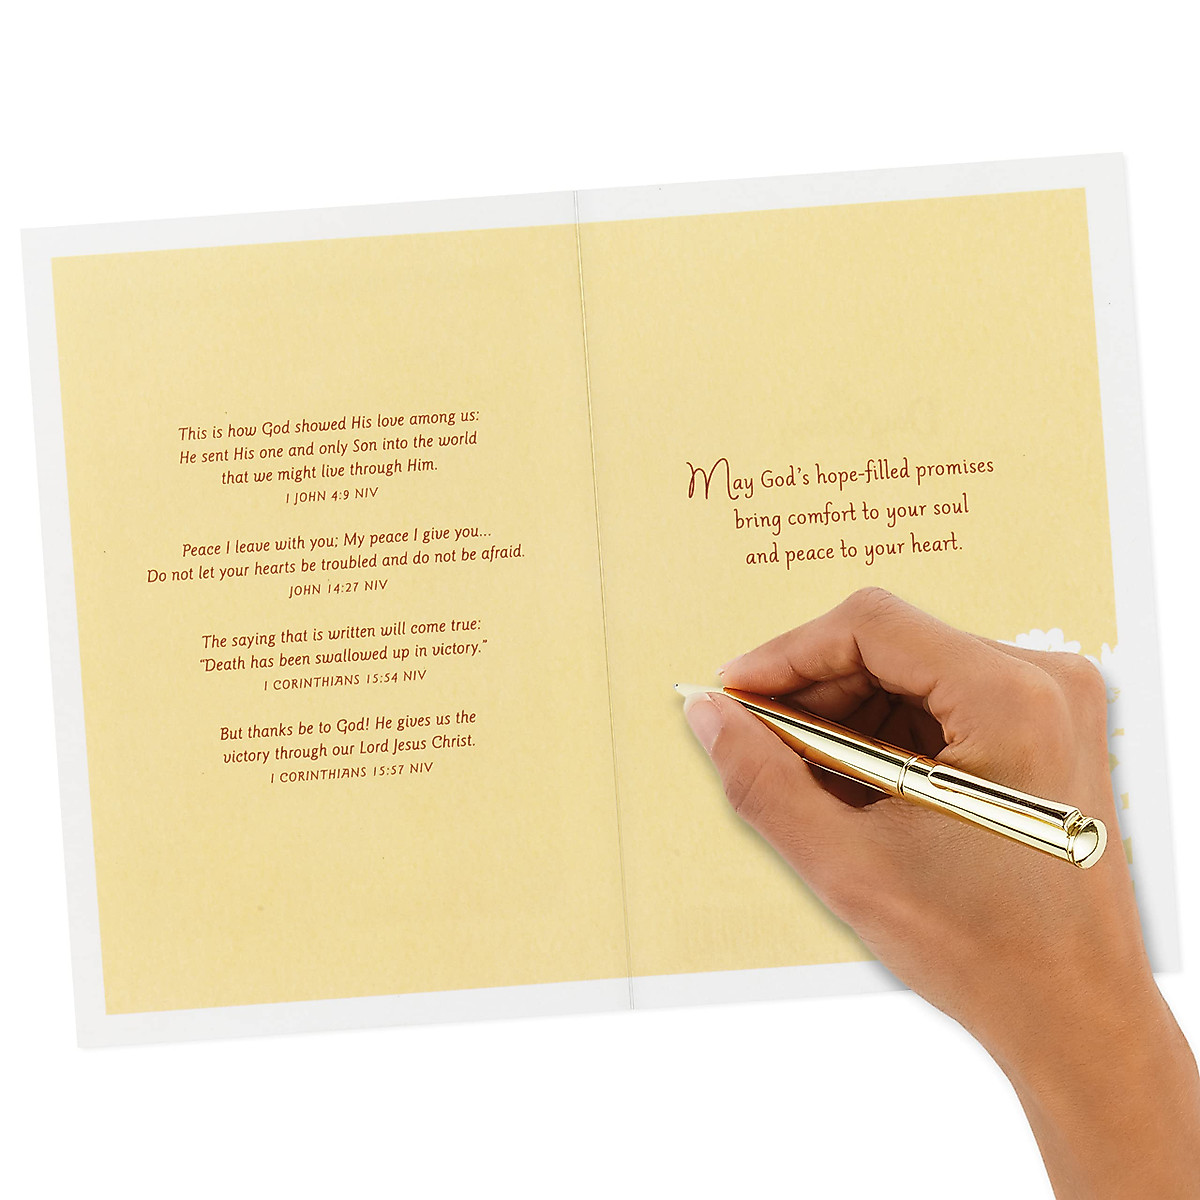 This is how God showed His love among us:
He sent His one and only Son into the world
that we might live through Him.
1 JOHN 4:9 NIV
Peace I leave with you; My peace I give you...
Do not let your hearts be troubled and do not be afraid.
JOHN 14:27 NIV
The saying that is written will come true:
“Death has been swallowed up in victory.”
1 CORINTHIANS 15:54 NIV
But thanks be to God! He gives us the
victory through our Lord Jesus Christ.
1 CORINTHIANS 15:57 NIV
May God’s hope-filled promises
bring comfort to your soul
and peace to your heart.